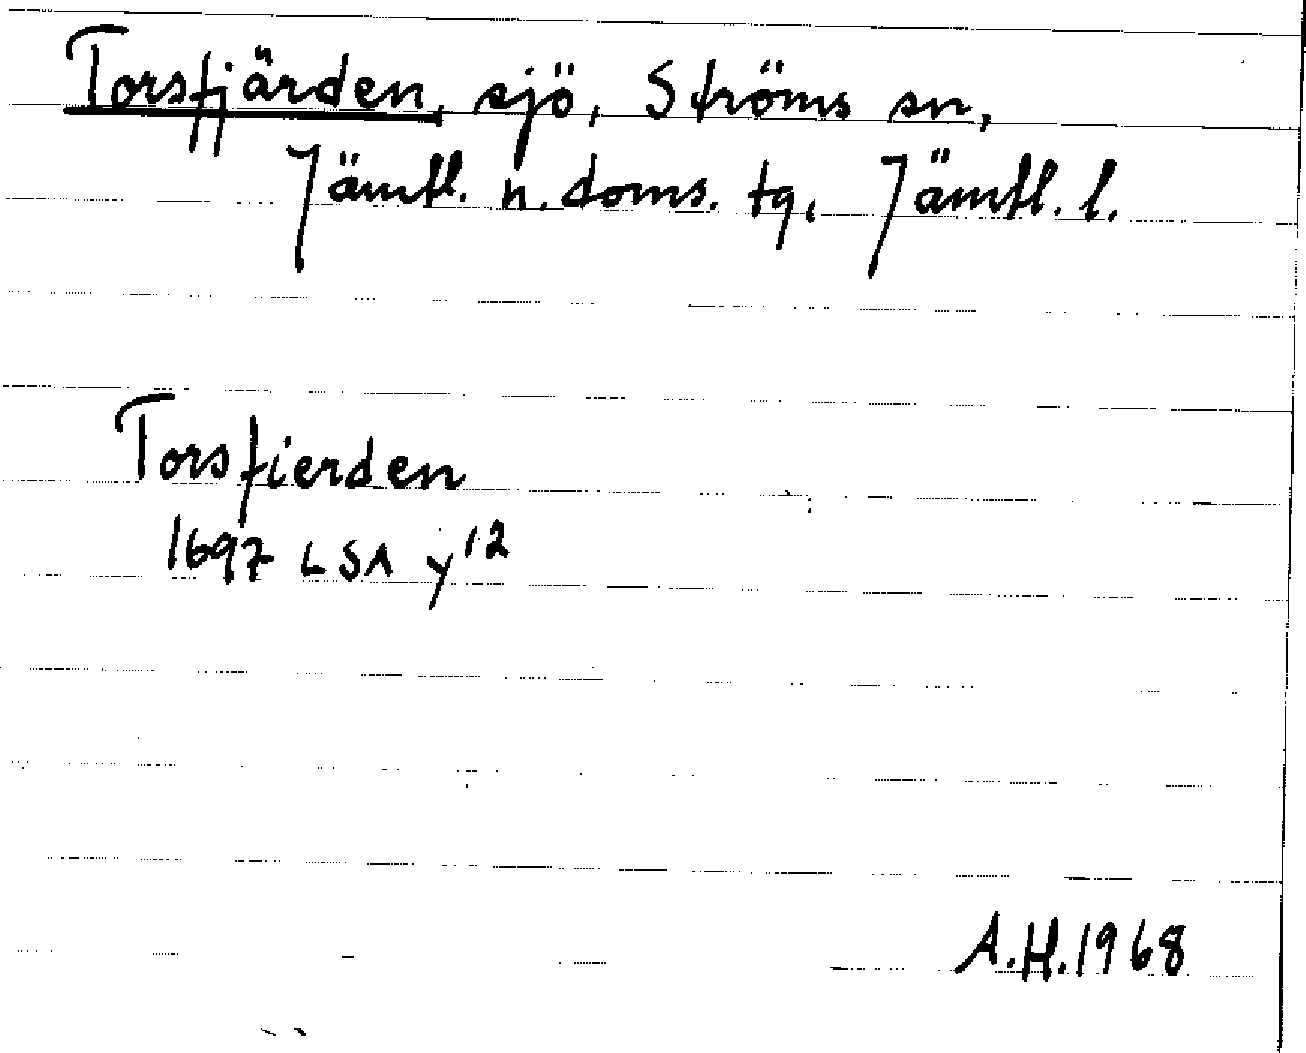 Torsfjärden, sjö, Ströms sn,
Jämtl. n. doms. tg, Jämtl. l.
Torsfierden
1697 LSA y 12
A.H. 1968